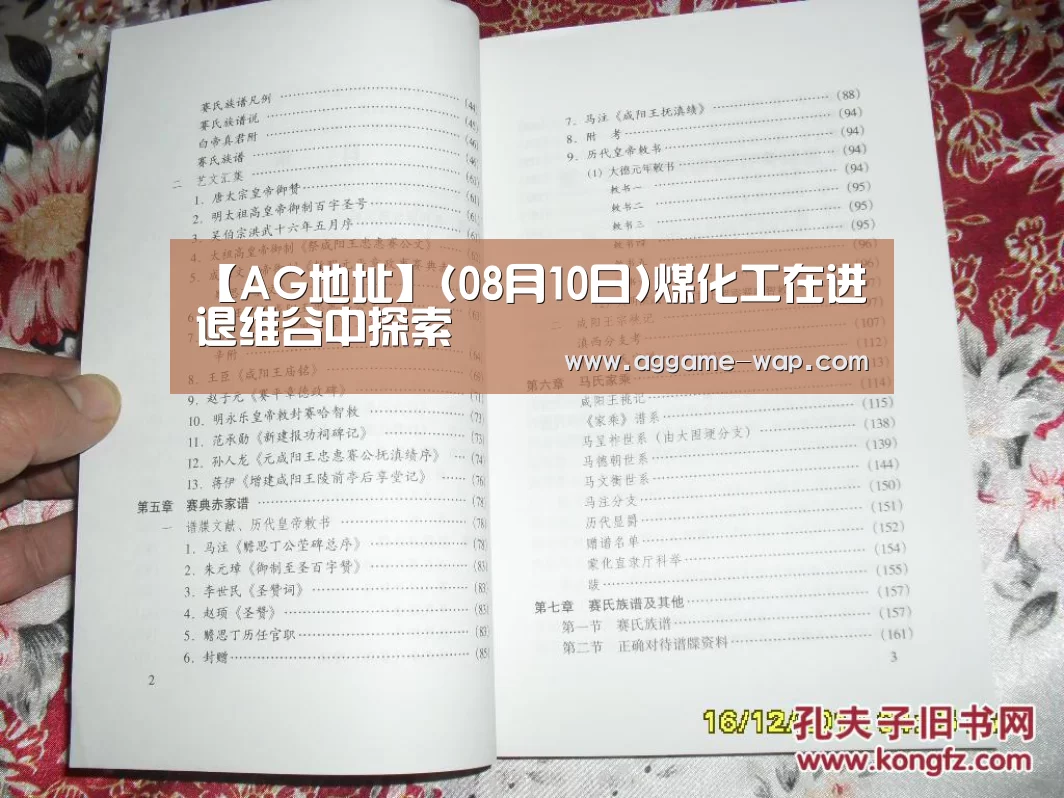 赛氏族谱凡例 (44
赛氏族谱说 (45
白帝真君附 (46
赛氏族谱 (46
二 艺文汇集 (61
1. 唐太宗皇帝御赞 (61
2. 明太祖高皇帝御制百字圣号 (61
3. 吴伯宗洪武十六年五月序 (61
太祖高皇帝御制《祭咸阳王忠惠赛公文》
辛附
8. 王臣《咸阳王庙铭》 (69
9. 赵子元《赛平章德政碑》 (71
10. 明永乐皇帝敕封赛哈智敕 (73
11. 范承勋《新建报功祠碑记》 (73
12. 孙人龙《元咸阳王忠惠赛公抚滇绩序》 (74
13. 蒋伊《增建咸阳王陵前亭后享堂记》 (76
第五章 赛典赤家谱 (78
一 谱牒文献、历代皇帝敕书 (78
1. 马注《赡思丁公茔碑总序》 (78
2. 朱元璋《御制至圣百字赞》 (83
3. 李世民《圣赞词》 (83
4. 赵顼《圣赞》 (83
5. 赡思丁历任官职 (83
6. 封赠 (85
2
7. 马注《咸阳王抚滇绩》 (88)
8. 附 考 (94)
9. 历代皇帝敕书 (94)
(1) 大德元年敕书 (94)
敕书一 (94)
敕书二 (95)
敕书三 (95)
敕书四 (95)
(96)
(96)
(97)
二 咸阳王宗桃记 (107)
滇西分支考 (112)
第六章 马氏家乘 (113)
咸阳王桃记 (114)
《家乘》谱系 (115)
马呈祚世系（由大围埂分支） (138)
马德朝世系 (139)
马文衡世系 (144)
马注分支 (150)
历代显爵 (151)
赠谱名单 (152)
蒙化直隶厅科举 (154)
跋 (155)
第七章 赛氏族谱及其他 (157)
第一节 赛氏族谱 (157)
第二节 正确对待谱牒资料 (161)
3
【AG地址】(08月10日)煤化工在进
退维谷中探索
www.aggame-wap.com
16/12/
孔夫子旧书网
www.kongfz.com